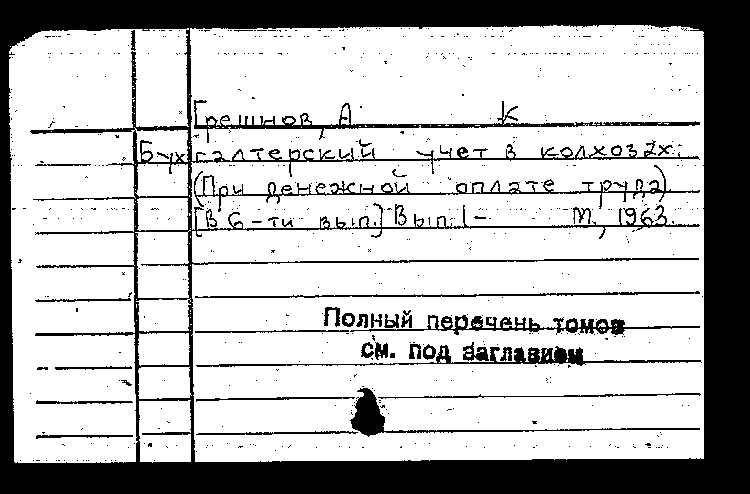 Грешнов, А К
Бухгалтерский учет в колхозах.
(При денежной оплате труда)
[В 6-ти вып.] Вып. 1- М., 1963.
Полный перечень томов
см. под заглавием